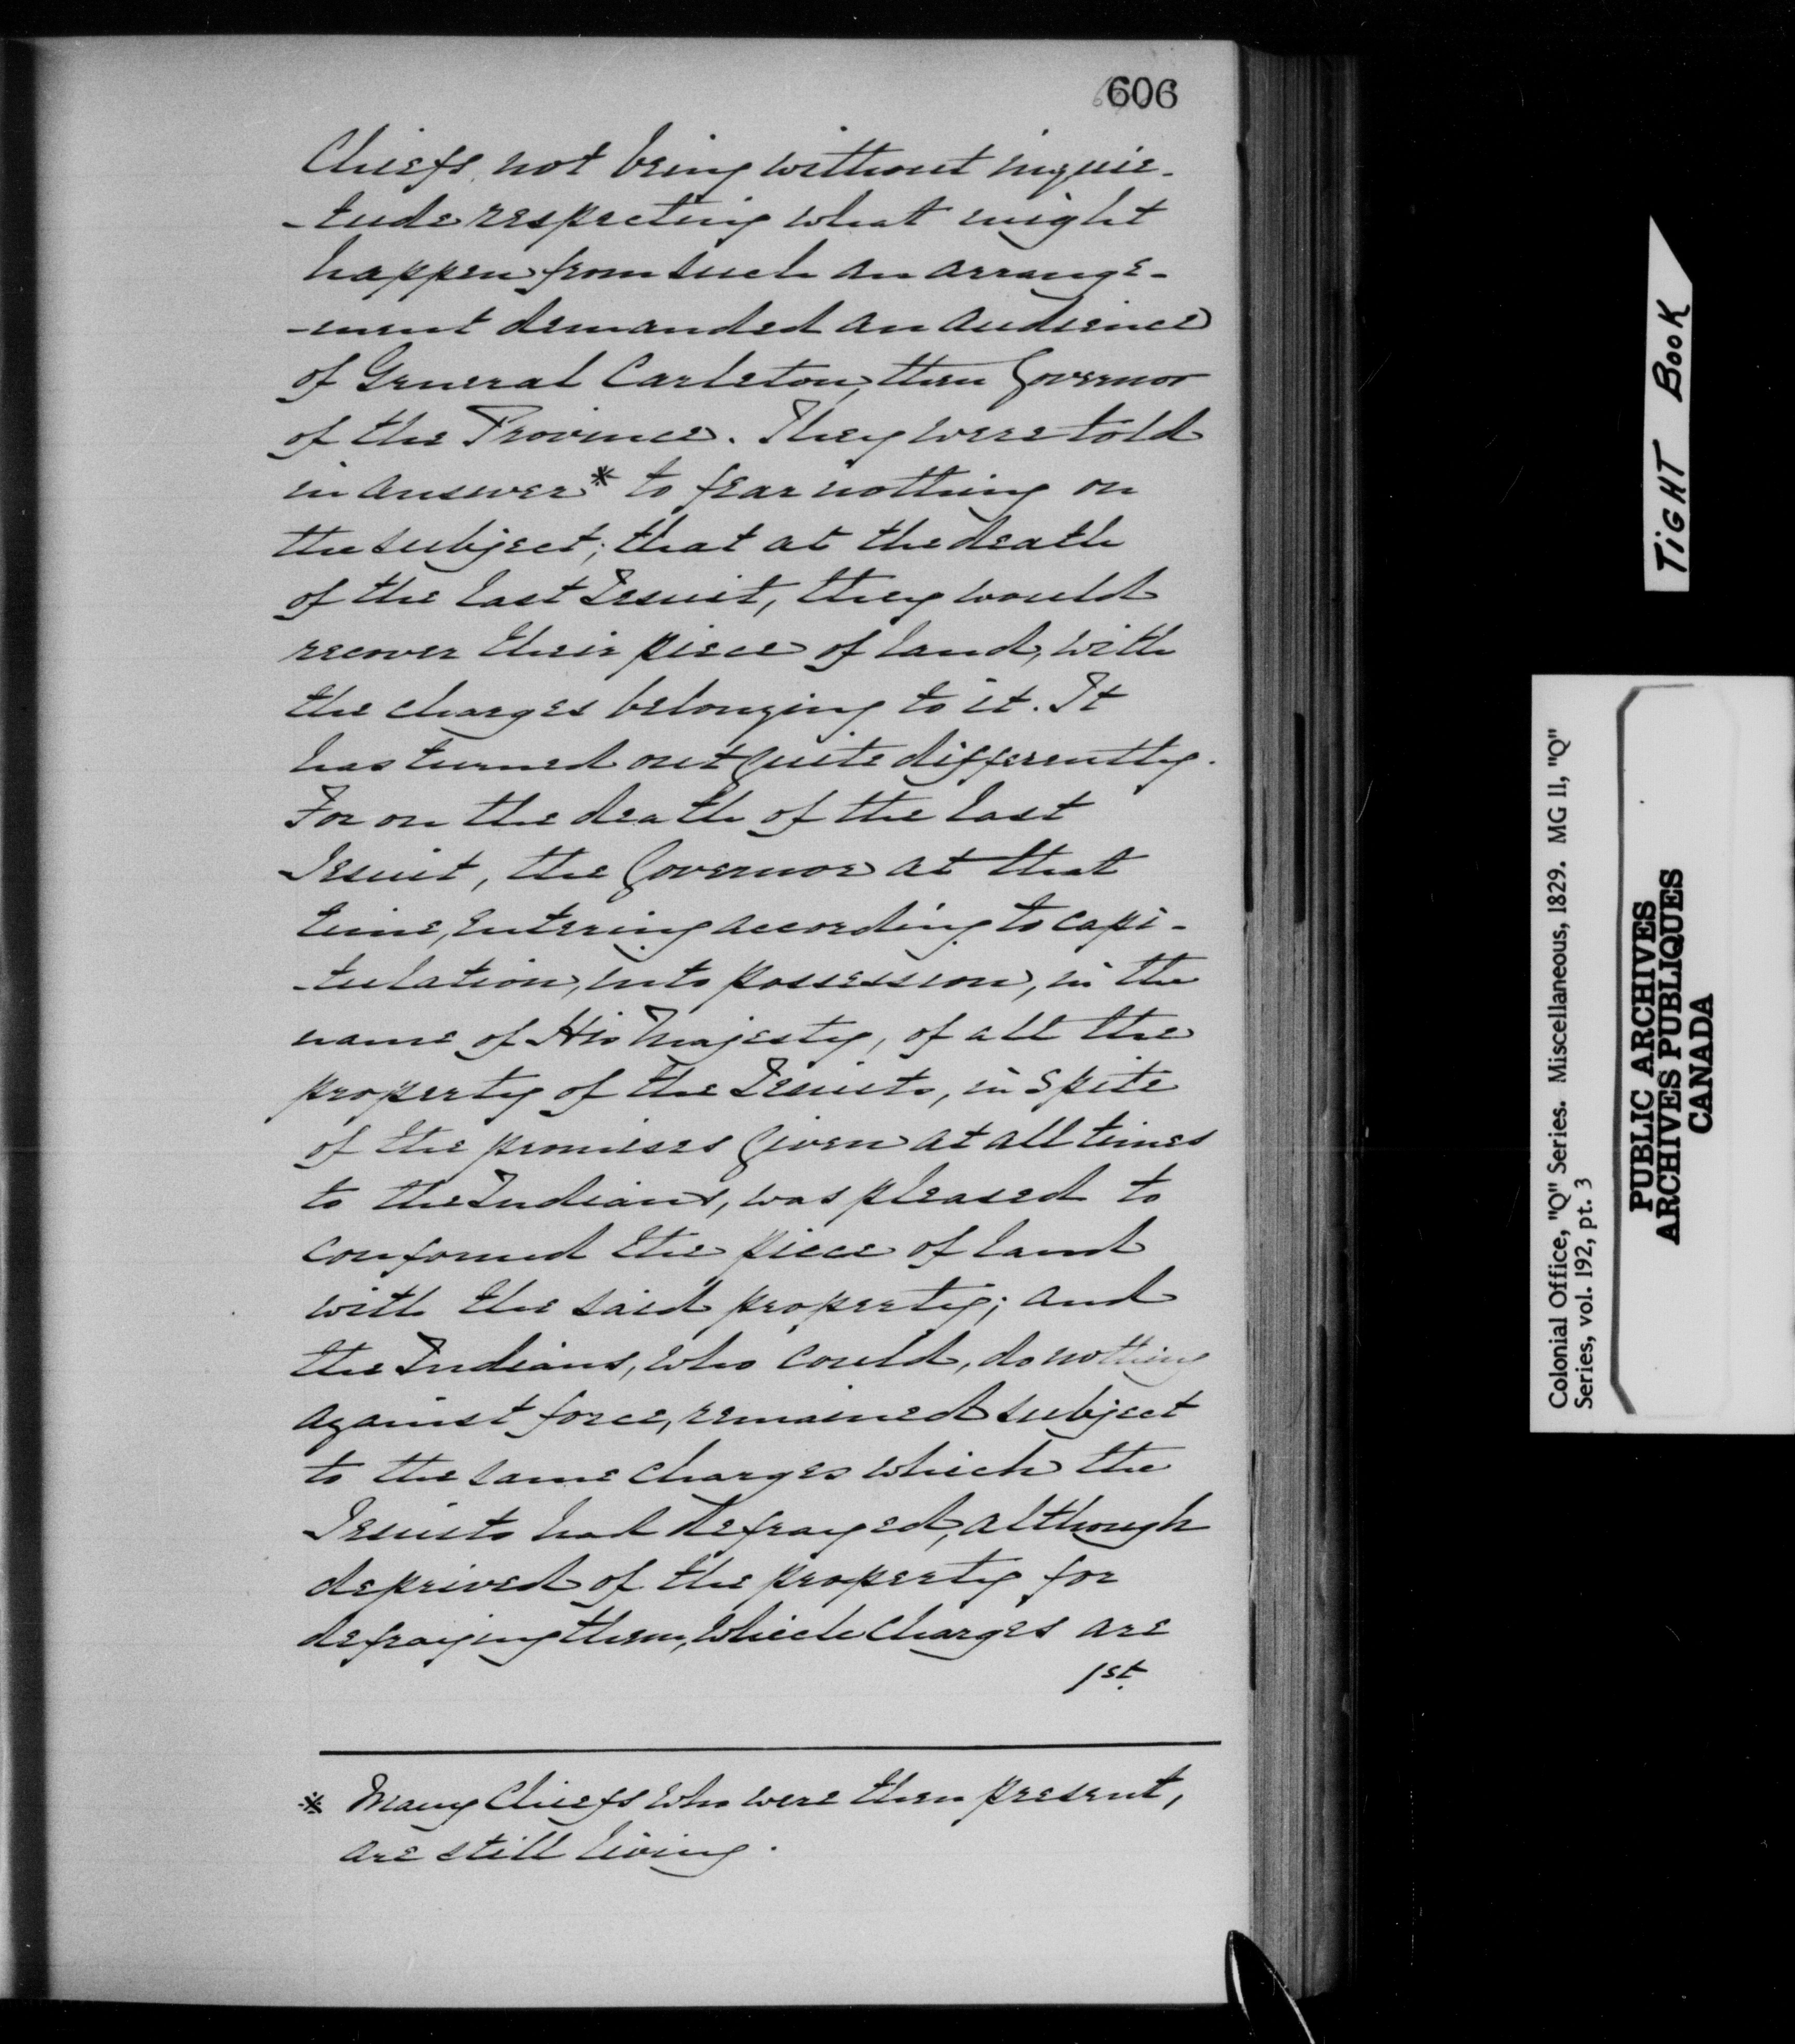 606
Chiefs, not being without inquie-
-tude respecting what might
happen from such an arrange-
-ment demanded an audience
of General Carleton, then Governor
of the Province. They were told
in answer* to fear nothing on
the subject; that at the death
of the last Jesuit, they would
recover their piece of land, with
the charges belonging to it. It
has turned out quite differently.
For on the death of the last
Jesuit, the Governor at that
time, entering according to capi-
-tulation, into possession, in the
name of His Majesty, of all the
property of the Jesuits, in spite
of the promises given at all times
to the Indians, was pleased to
confound the piece of land
with the said property; and
the Indians, who could, do nothing
against force, remained subject
to the same charges which the
Jesuits had defrayed, although
deprived of the property for
defraying them, which charges are
1st.
* Many Chiefs who were then present,
are still living.
TIGHT BOOK
Colonial Office, "Q" Series. Miscellaneous, 1829. MG 11, "Q"
Series, vol. 192, pt. 3
PUBLIC ARCHIVES
ARCHIVES PUBLIQUES
CANADA